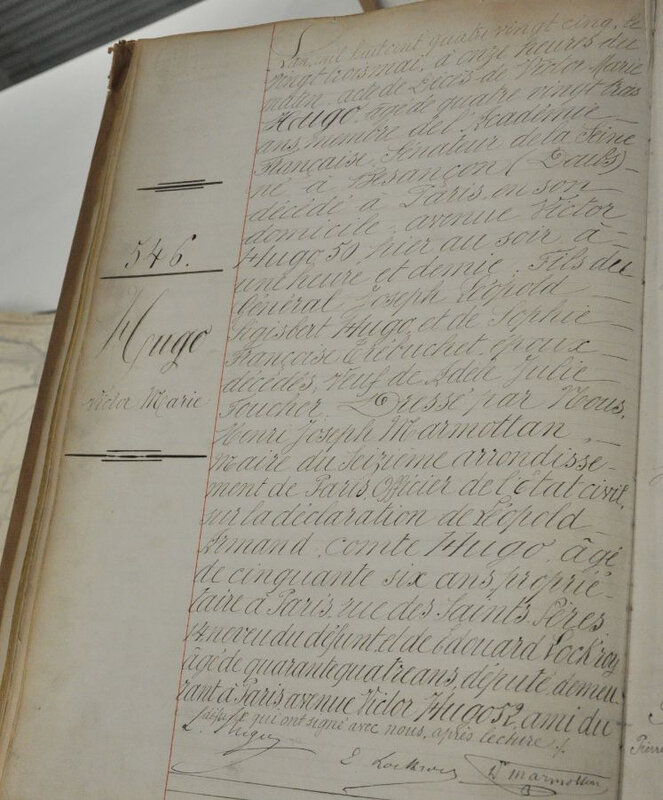 546.
Hugo
Victor Marie
L'an mil huit cent quatre vingt cinq, le
vingt trois mai, à onze heures du
matin. acte de Décès de Victor Marie
Hugo, âgé de quatre vingt trois
ans, membre de l'Académie
Française, Sénateur de la Seine
né à Besançon (Doubs)
décédé à Paris, en son
domicile, avenue Victor
Hugo 50, hier au soir, à
une heure et demie. Fils du
Général Joseph Léopold
Sigisbert Hugo, et de Sophie
Françoise Trébuchet, époux
décédés, Veuf de Adèle Julie
Foucher. Dressé par Nous,
Henri Joseph Marmottan
Maire du Seizième arrondisse-
ment de Paris, Officier de l'État civil,
sur la déclaration de Léopold
Armand, comte Hugo, âgé
de cinquante six ans, proprié-
taire à Paris, rue des Saints Pères
14 neveu du défunt, et de Edouard Lockroy
âgé de quarante quatre ans, député, demeu-
rant à Paris avenue Victor Hugo 52, ami du
défunt qui ont signé avec nous, après lecture.
L. Hugo
E Lockroy
Dr marmottan